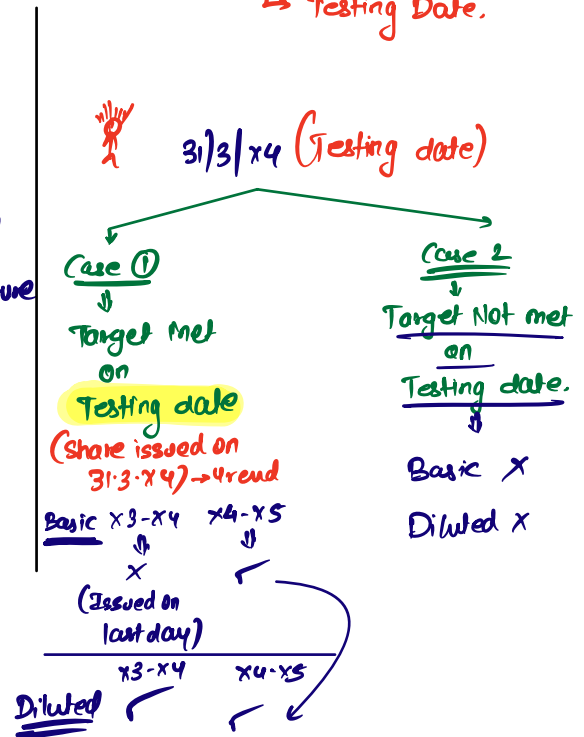 ↳ Testing Date.
31/3/x4 (Testing date)
Case ①
⇓
Target Met
on
Testing date
(share issued on
31.3.x4) → yrend
Basic x3-x4 x4-x5
⇓ ⇓
× ✓
(Issued on
last day)
x3-x4 x4-x5
Diluted ✓ ✓
Case 2
↓
Target Not met
on
Testing date.
⇓
Basic ×
Diluted ×